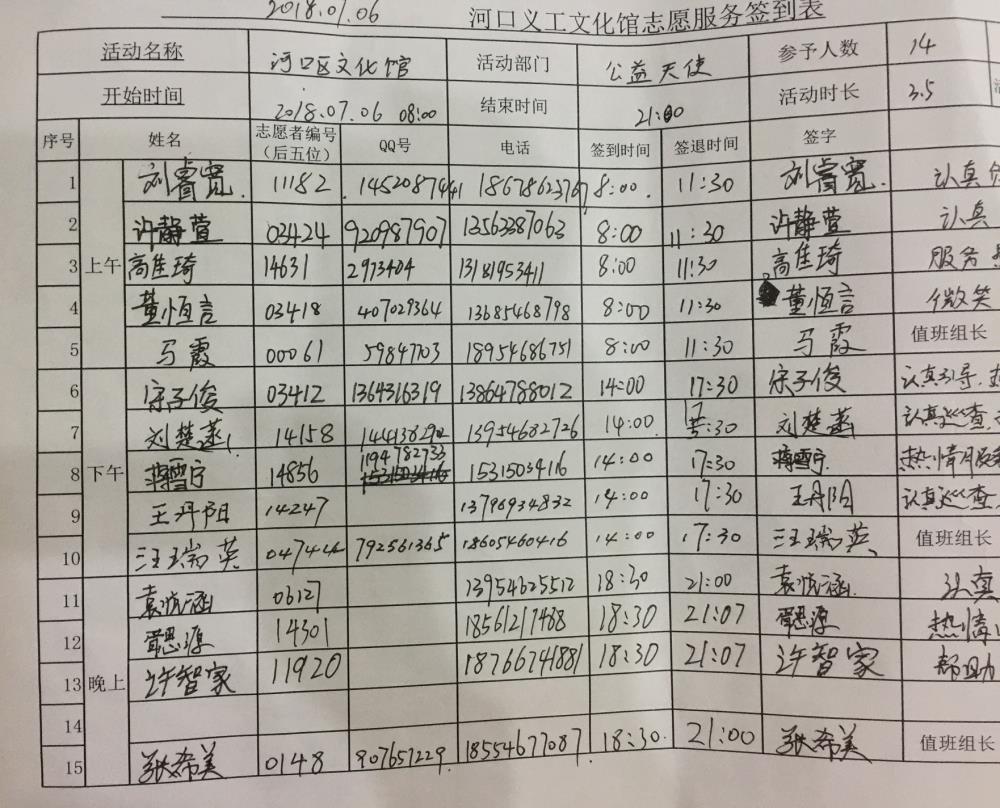 2018.07.06 河口义工文化馆志愿服务签到表
活动名称 河口区文化馆 活动部门 公益天使 参予人数 14
开始时间 2018.07.06 08:00 结束时间 21:00 活动时长 3.5
序号 姓名 志愿者编号（后五位） QQ号 电话 签到时间 签退时间 签字
1 刘睿宽 11182 1452087441 18678623767 8:00 11:30 刘睿宽 认真
2 许静萱 03424 920987907 13563387063 8:00 11:30 许静萱 认真
3 上午 高佳琦 14631 2973404 13181953411 8:00 11:30 高佳琦 服务
4 董恒言 03418 407029364 13685468798 8:00 11:30 董恒言 微笑
5 马霞 00061 59847703 18954686751 8:00 11:30 马霞 值班组长
6 宋子俊 03412 1364316319 13864788012 14:00 17:30 宋子俊 认真引导
7 刘楚 14158 144138290 13954682726 14:00 :30 刘楚 认真巡查
8 下午 蒋雪宁 14856 1194782733 15315034116 14:00 17:30 蒋雪宁 热情服务
9 王丹阳 14247 13796934832 14:00 17:30 王丹阳 认真巡查
10 汪瑞英 04744 792561365 18605460416 14:00 17:30 汪瑞英 值班组长
11 袁涵 06127 13954625512 18:30 21:00 袁涵 认真
12 源 14301 18561217488 18:30 21:07 源 热情
13 晚上 许智家 11920 18766741881 18:30 21:07 许智家 帮助
14
15 张希美 0148 907657229 18554677087 18:30 21:00 张希美 值班组长